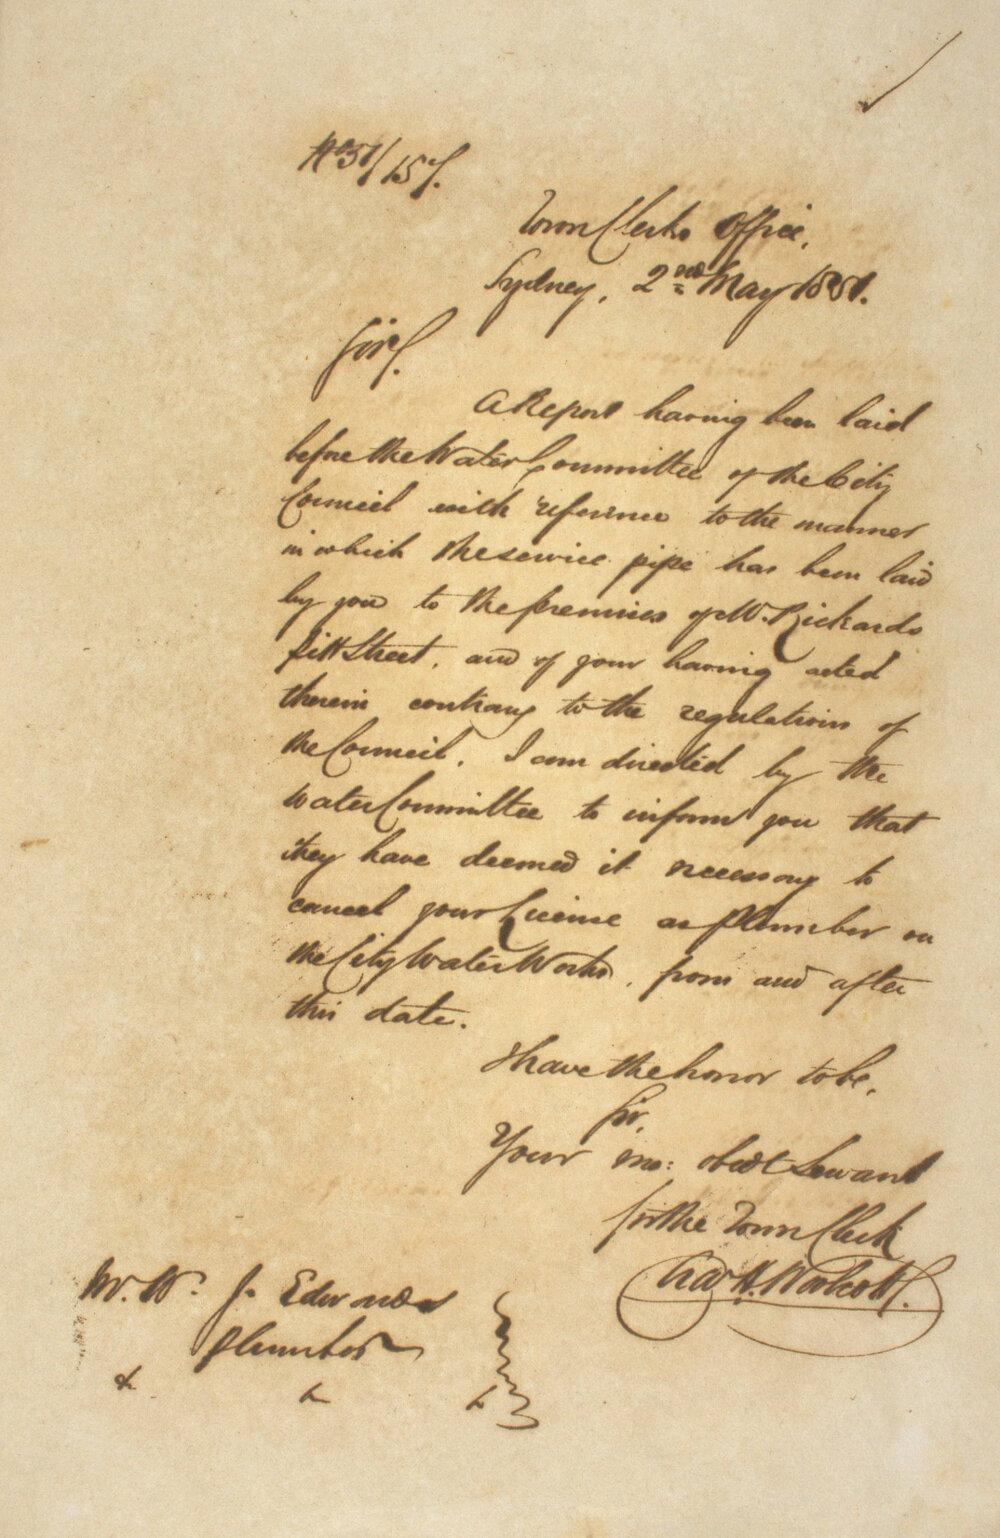 No 51/157.
Town Clerks Office,
Sydney, 2nd May 1851.
Sir,
A Report having been laid
before the Water Committee of the City
Council with reference to the manner
in which the service pipe has been laid
by you to the premises of Mr. Rickards
Pitt Street, and of your having acted
therein contrary to the regulations of
the Council, I am directed by the
Water Committee to inform you that
they have deemed it necessary to
cancel your License as Plumber on
the City Water Works, from and after
this date.
I have the honor to be,
Sir,
Your mo: obedt Servant
for the Town Clerk
Chas H. Woolcott.
Mr. W. J. Edwards
Plumber
&c &c